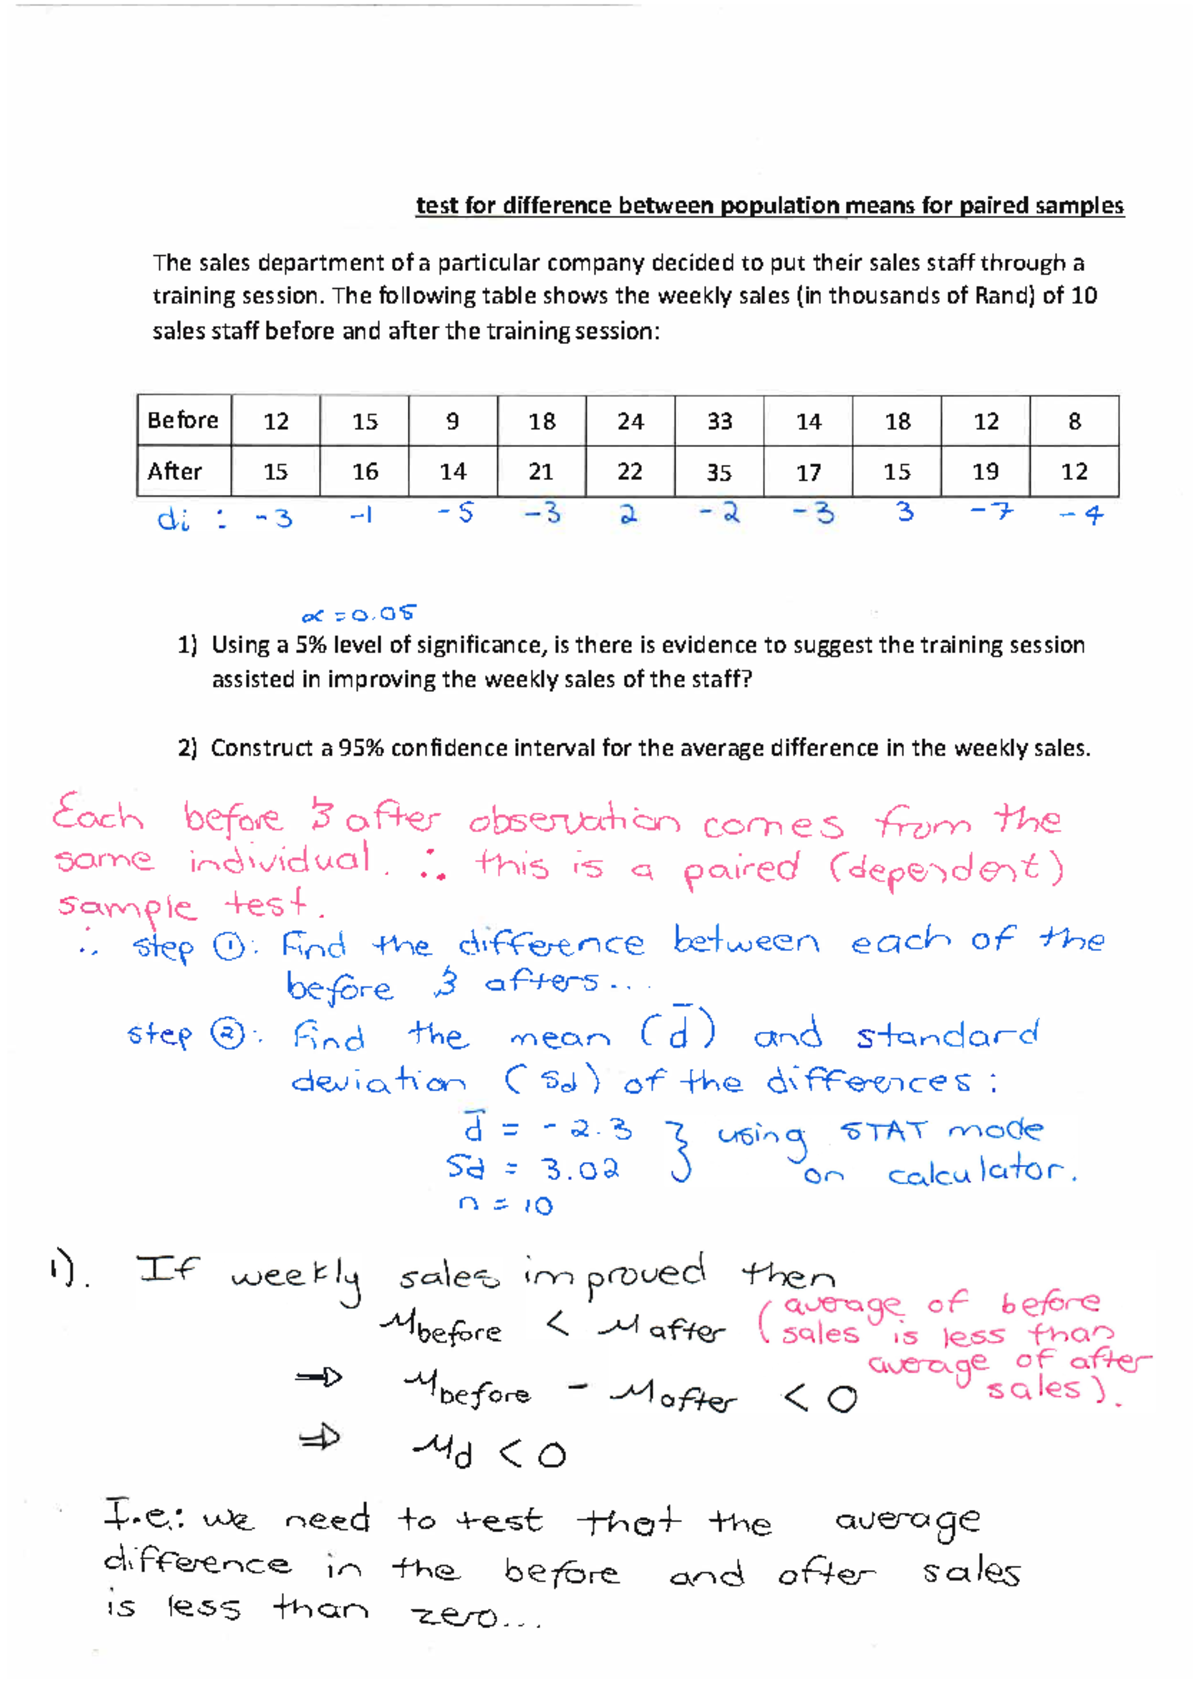 test for difference between population means for paired samples
The sales department of a particular company decided to put their sales staff through a
training session. The following table shows the weekly sales (in thousands of Rand) of 10
sales staff before and after the training session:
Before 12 15 9 18 24 33 14 18 12 8
After 15 16 14 21 22 35 17 15 19 12
di : -3 -1 -5 -3 2 -2 -3 3 -7 -4
α = 0.05
1) Using a 5% level of significance, is there is evidence to suggest the training session
assisted in improving the weekly sales of the staff?
2) Construct a 95% confidence interval for the average difference in the weekly sales.
Each before & after observation comes from the
same individual. ∴ this is a paired (dependent)
sample test.
∴ step ①: Find the difference between each of the
before & afters...
step ②: Find the mean (d̅) and standard
deviation (Sd) of the differences:
d̅ = -2.3 } using STAT mode
Sd = 3.02 on calculator.
n = 10
1). If weekly sales improved then
μbefore < μafter (average of before
sales is less than
average of after
sales).
⇒ μbefore - μafter < 0
⇒ μd < 0
I.e.: we need to test that the average
difference in the before and after sales
is less than zero...